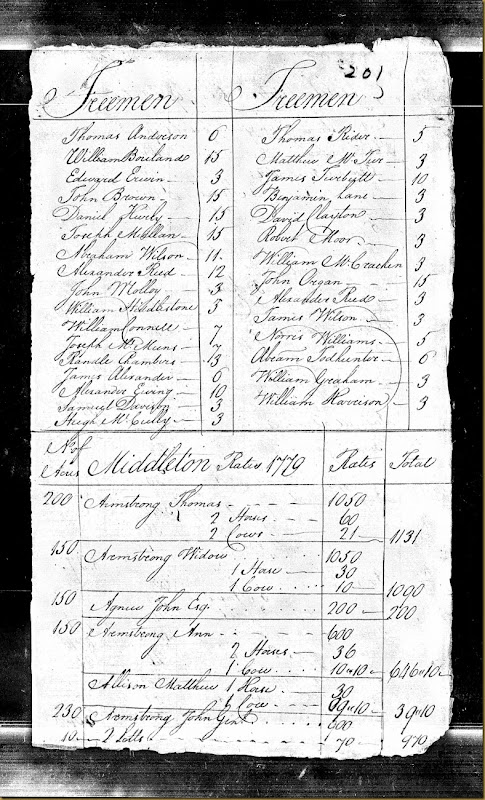 201
Freemen
Thomas Anderson 6
William Boreland 15
Edward Erwin 3
John Brown 15
Daniel 15
Joseph 15
Abraham Wilson 11
Alexander Reed 12
John Molloy 3
William Hiddlestone 5
William Connell 7
Joseph Mc Means 7
Randle Chambers 13
James Alexander 6
Alexander Ewing 10
Samuel Davison 3
Hugh Mc Curdy 3
Freemen
Thomas Rider 5
Matthew 3
James Turbytt 10
Benjamin Lane 3
David Clayton 3
Robert Moor 3
William Mc Crachen 3
John Organ 15
Alexander Reed 3
James Wilson 3
Norris Williams 5
Abram Todhunter 6
William Graham 3
William Harrison 3
No of Acres Middleton Rates 1779 Rates Total
200 Armstrong Thomas 1050
2 Horses 60
2 Cows 21 1131
150 Armstrong Widow 1050
1 Horse 30
1 Cow 10 1090
150 Agnew John Esq 200 200
150 Armstrong Ann 600
2 Horses 36
1 Cow 10 10 646 10
Allison Matthew 1 Horse 30
1 Cow 10 39 10
230 Armstrong John Gent
10 2 Lotts 70 970